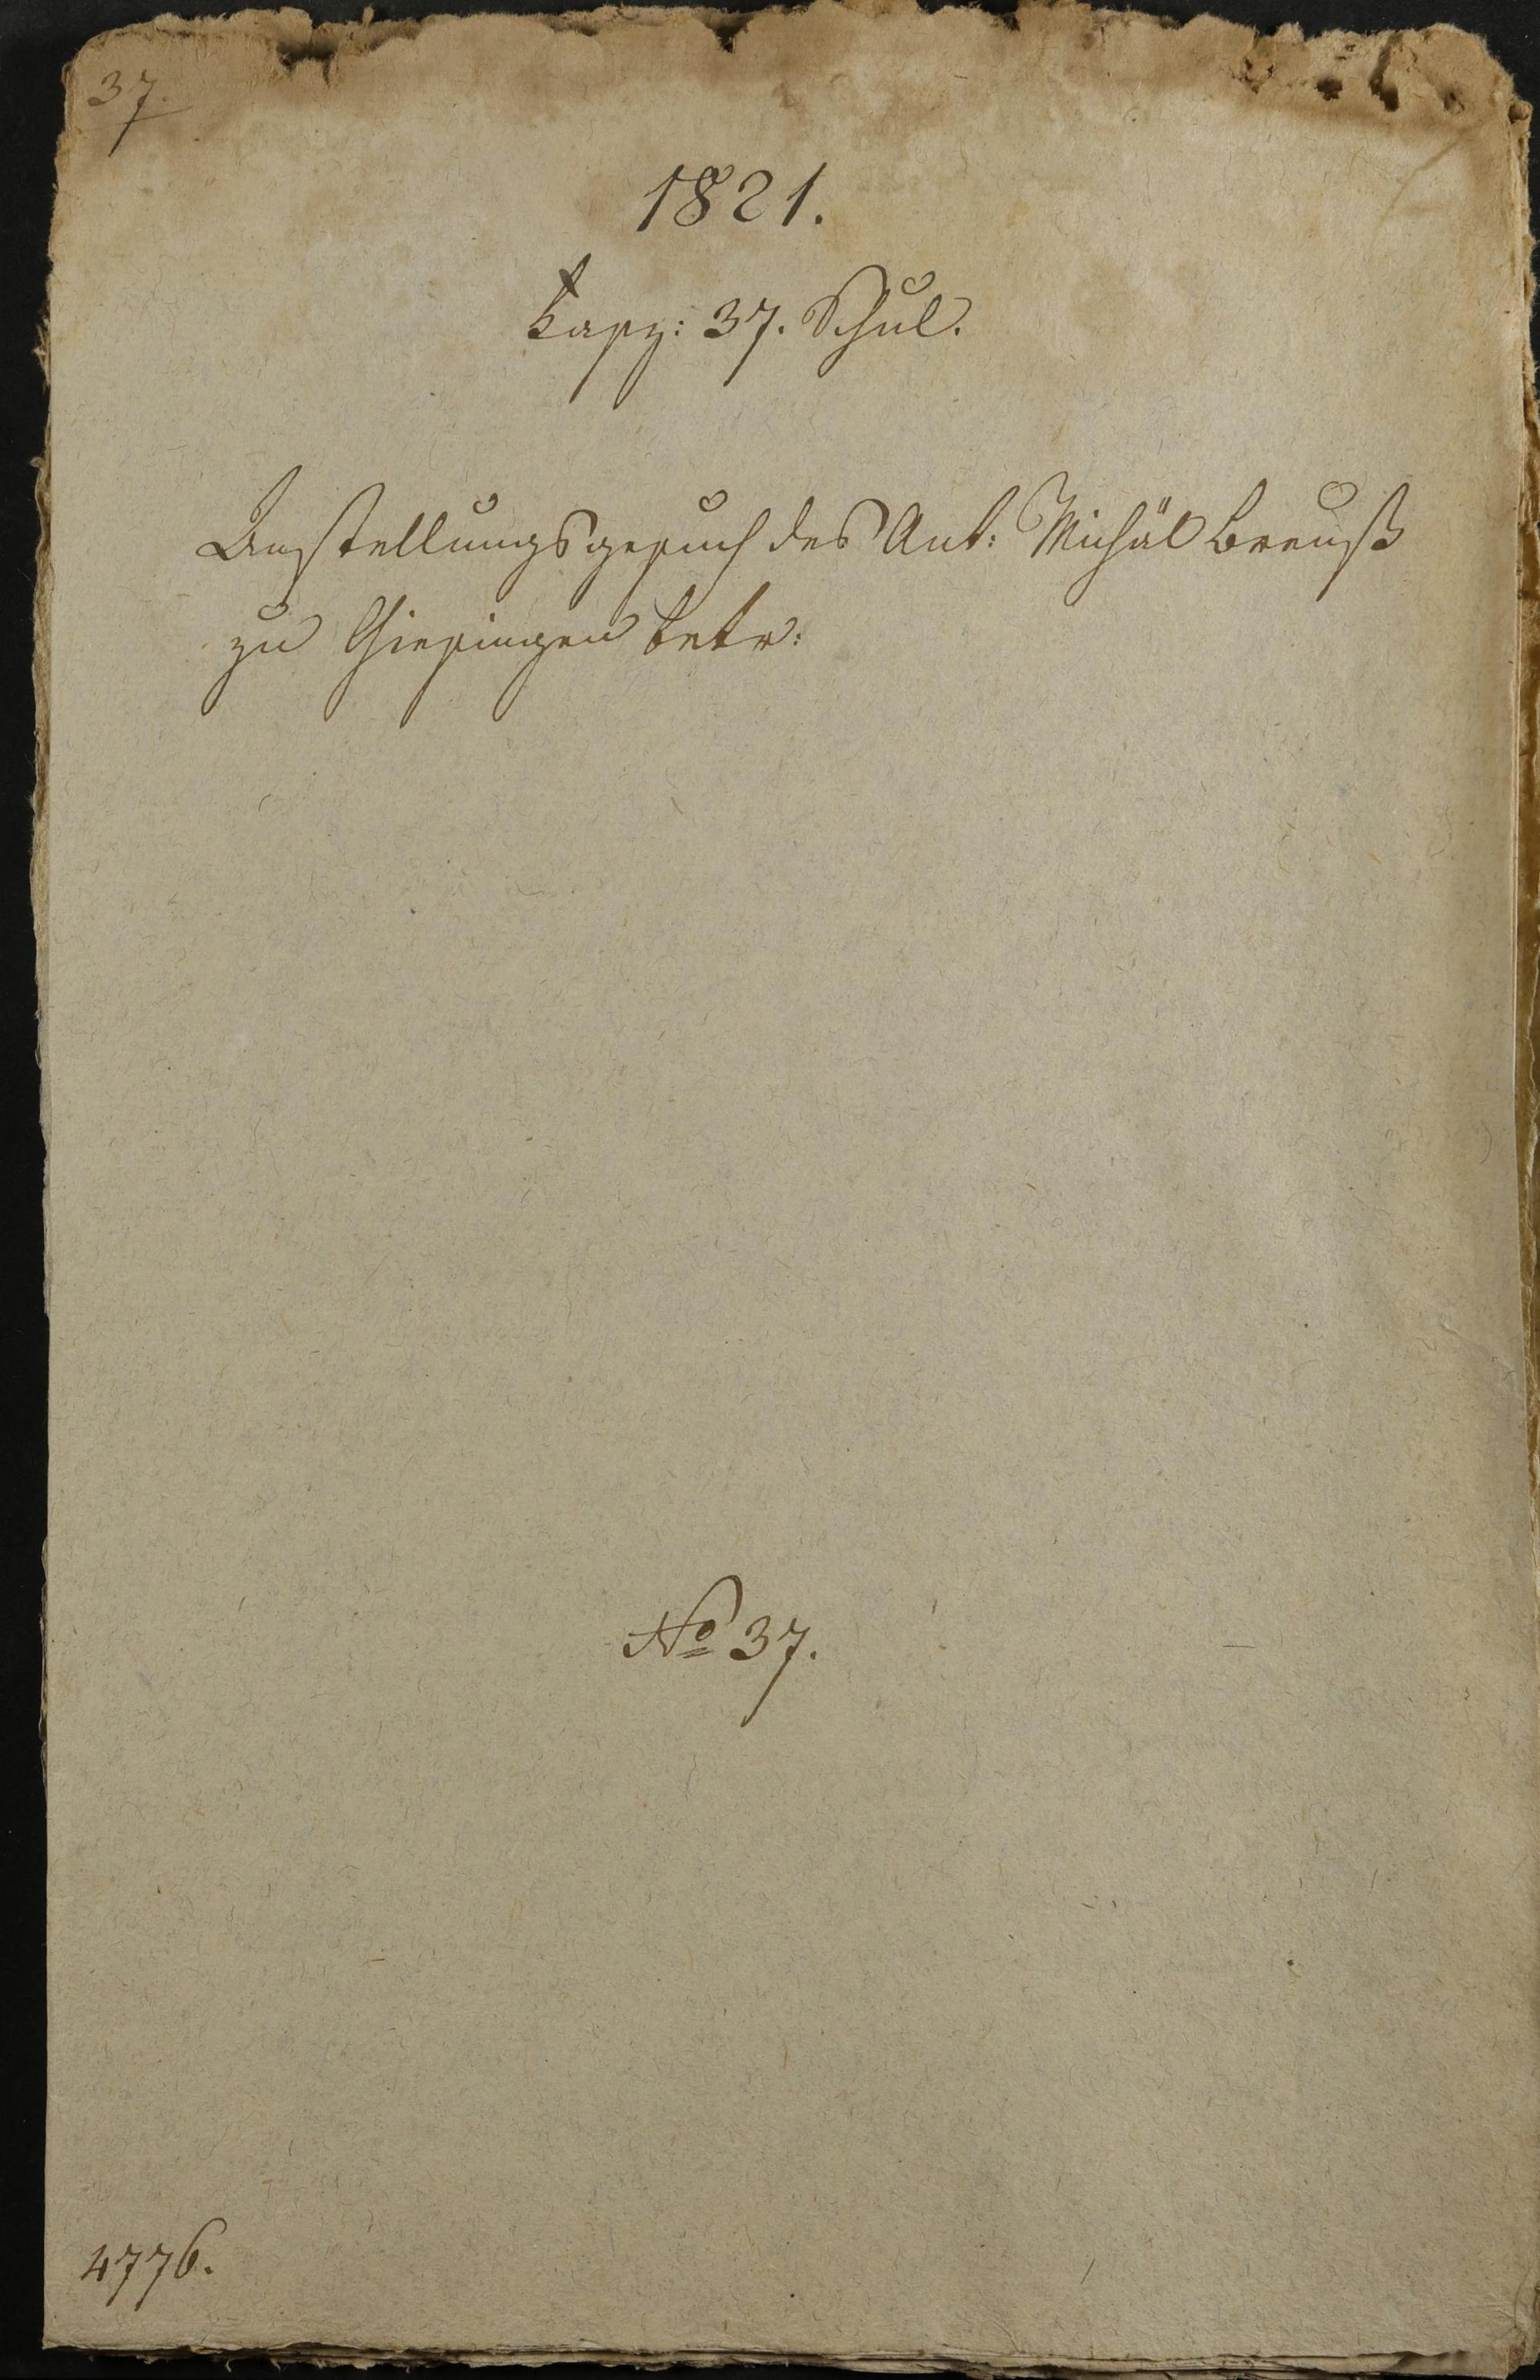 37.
1821.
Fasz: 37. Schul.
Anstellungsgesuch des Ant: Michäl Breuß
zu Gisingen betr:
No 37.
4776.